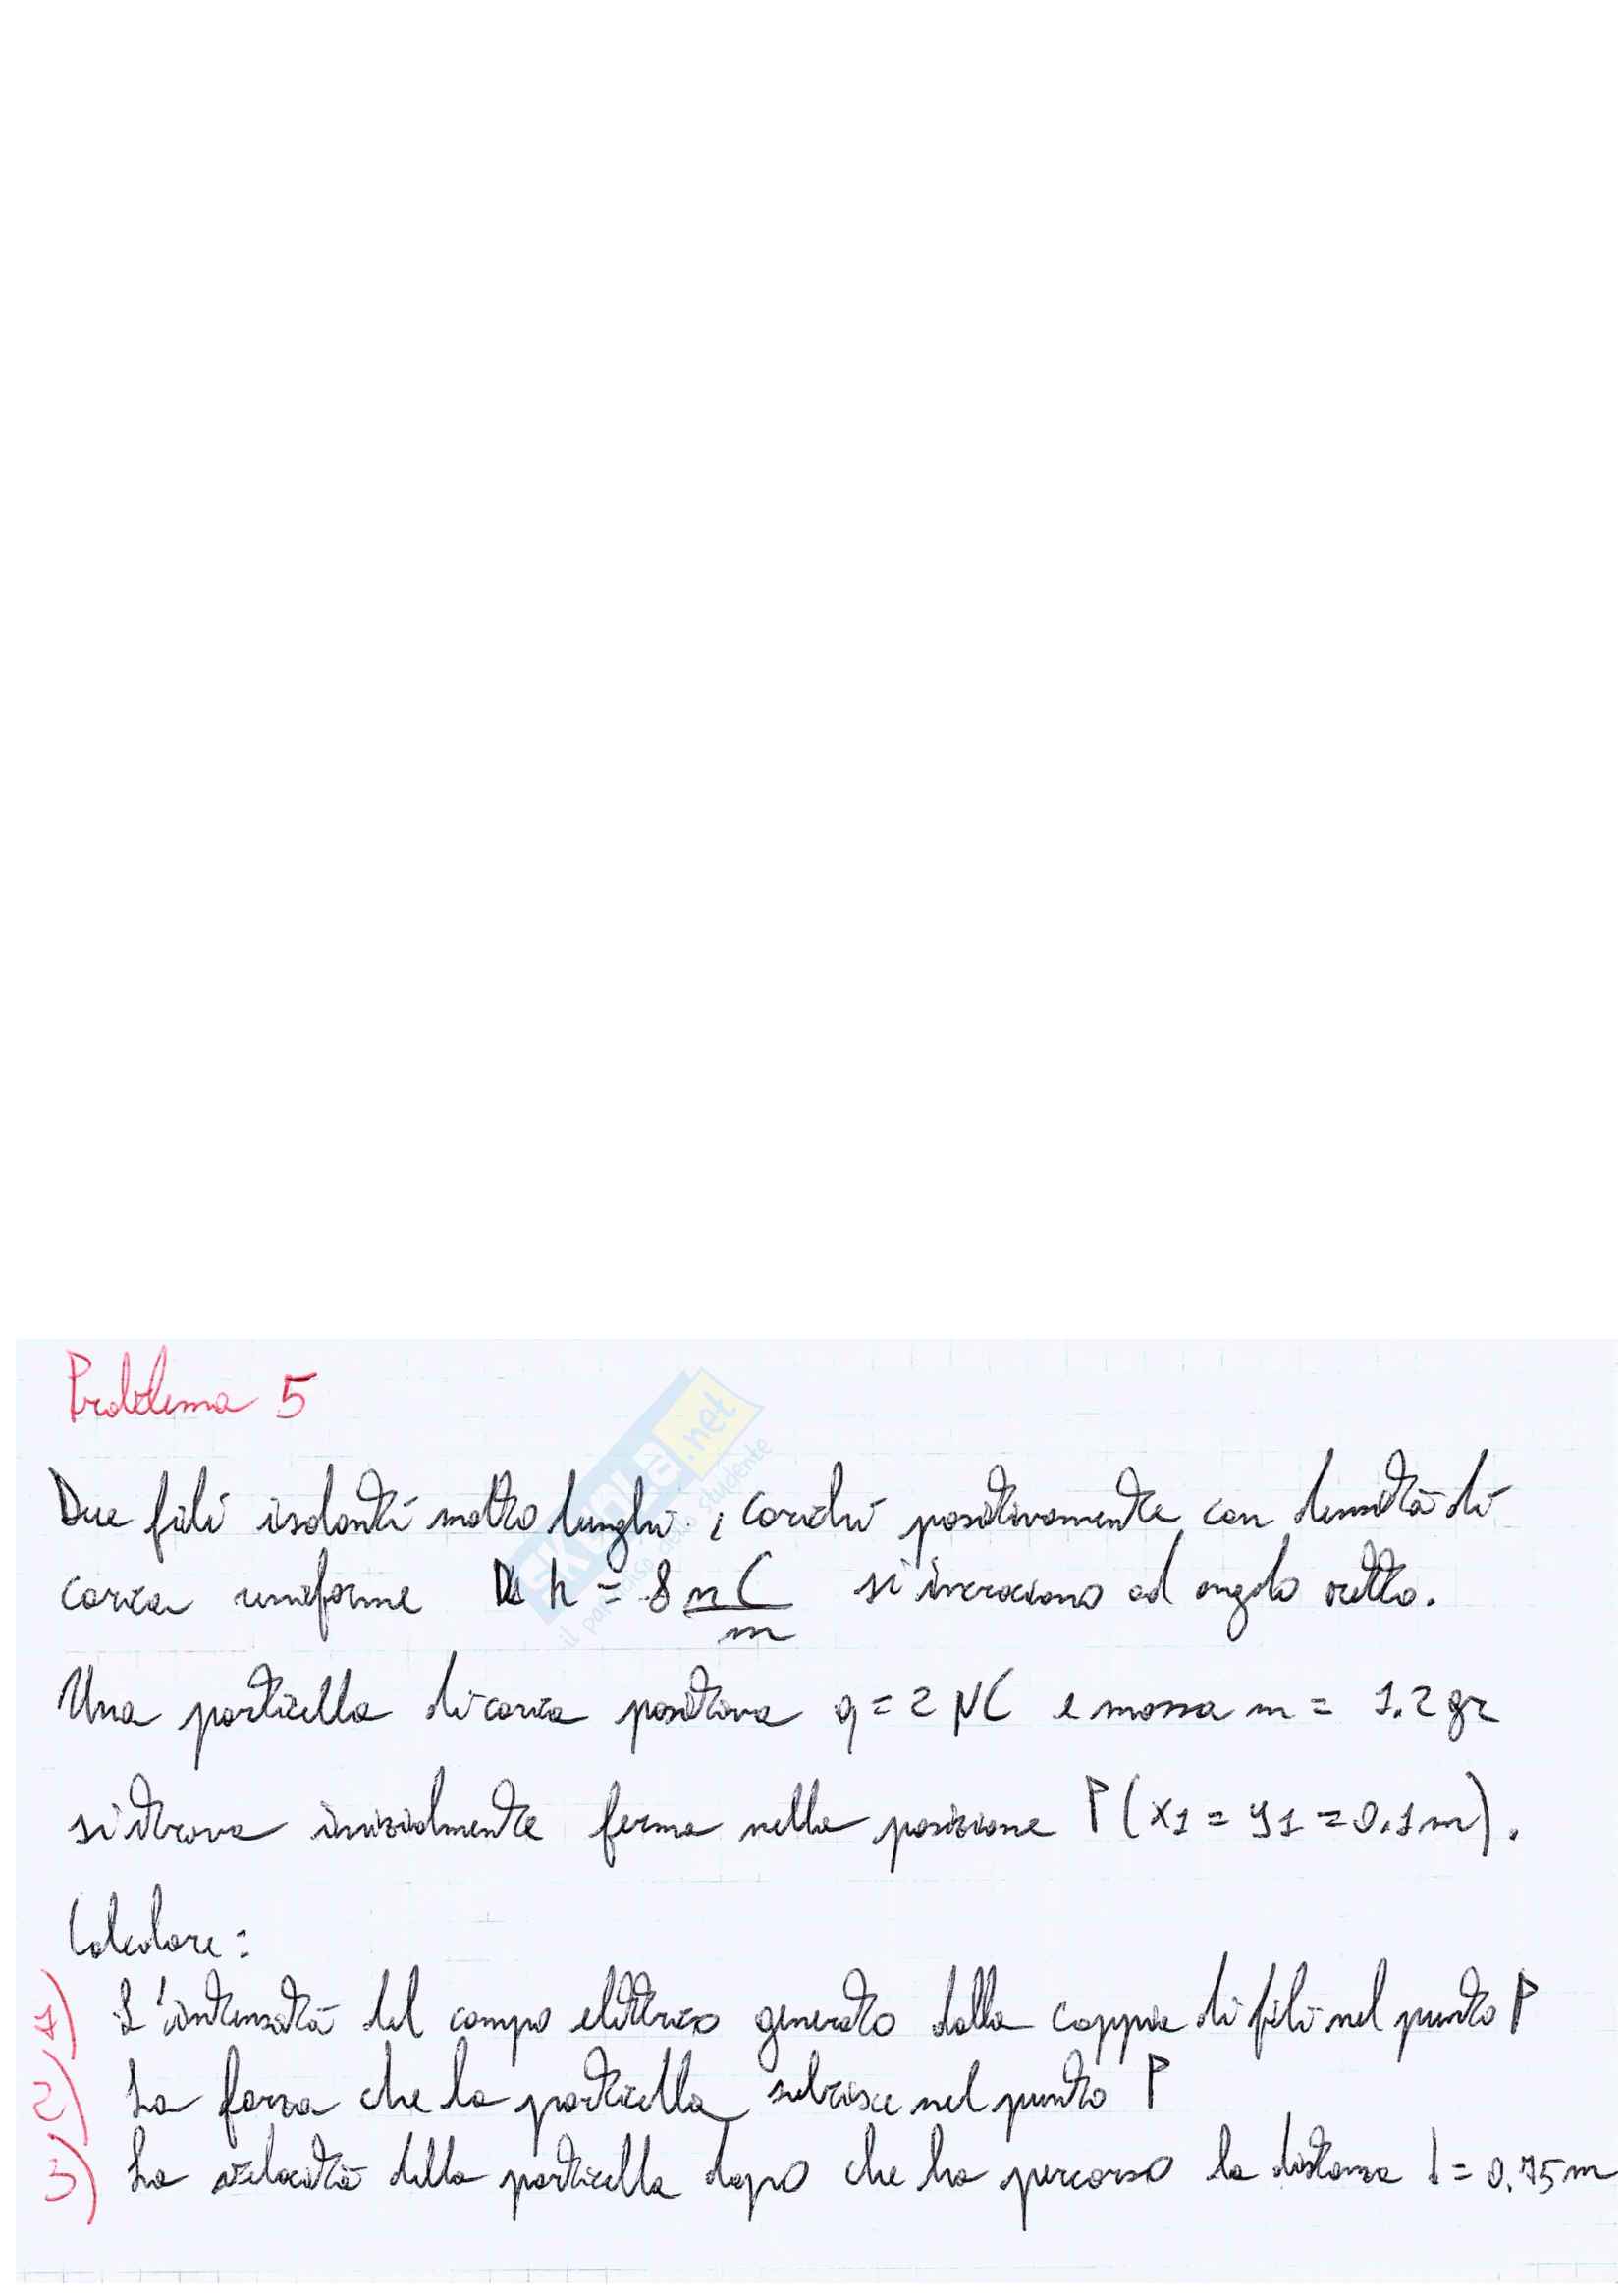 Problema 5
Due fili isolanti molto lunghi, carichi positivamente con densità di
carica uniforme λ = 8 nC/m si incrociano ad angolo retto.
Una particella di carica positiva q = 2 μC e massa m = 1.2 gr
si trova inizialmente ferma nella posizione P (x1 = y1 = 0.1 m).
Calcolare:
1) L'intensità del campo elettrico generato dalla coppia di fili nel punto P
2) La forza che la particella subisce nel punto P
3) La velocità della particella dopo che ha percorso la distanza d = 0.75 m
SKUOLA.net
il paradiso dello studente